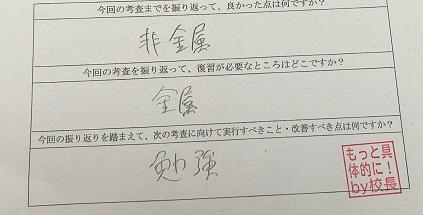 今回の考査までを振り返って、良かった点は何ですか？
非金属
今回の考査を振り返って、復習が必要なところはどこですか？
金属
今回の振り返りを踏まえて、次の考査に向けて実行すべきこと・改善すべき点は何ですか？
勉強
もっと具
体的に！
by校長